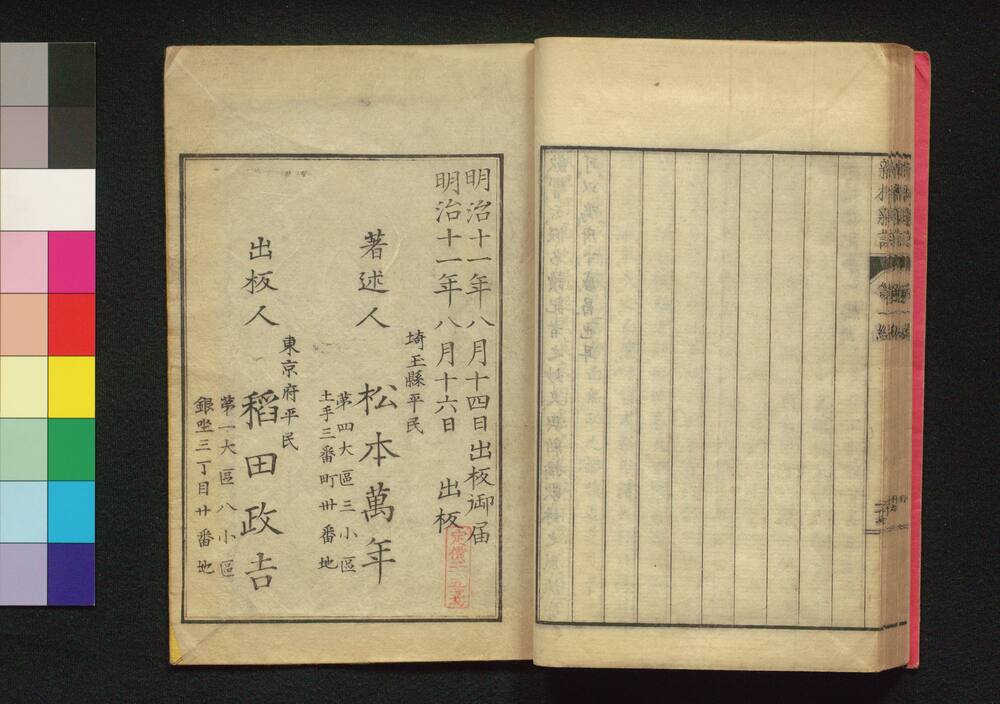 明治十一年八月十四日出板御届
明治十一年八月十六日 出板
埼玉縣平民
著述人 松本萬年
第四大區三小區
土手三番町卅番地
東京府平民
出板人 稻田政吉
第一大區八小區
銀坐三丁目廿番地
定價